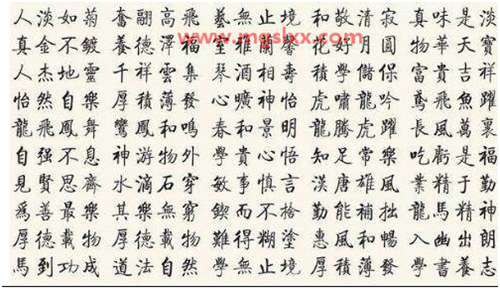 人淡如菊 奮翮高飛 藝無止境 和敬清寂 真味是淡
www.mgslxx.com
真金不鍍 養德澤福 室雅蘭馨 花好月圓 物華天寶
人杰地靈 千祥雲集 酒相壽 積學儲 富貴吉祥
怡然自樂 厚積薄發 心曠神怡 虎嘯龍吟 鳶飛魚躍
龍飛鳳舞 鸞鳳和鳴 春和景明 龍騰虎躍 長風萬裏
自强不息 神游物外 學貴心悟 知足常樂 吃虧是福
見賢思齊 水滴石穿 敏事慎言 漢唐雄風 業精于勤
爲善最樂 其樂無窮 鍥而不捨 勤能補拙 龍馬精神
厚德載物 厚德載物 難得糊塗 惠風和暢 入幽出朗
馬到功成 道法自然 學無止境 厚積薄發 學書養志